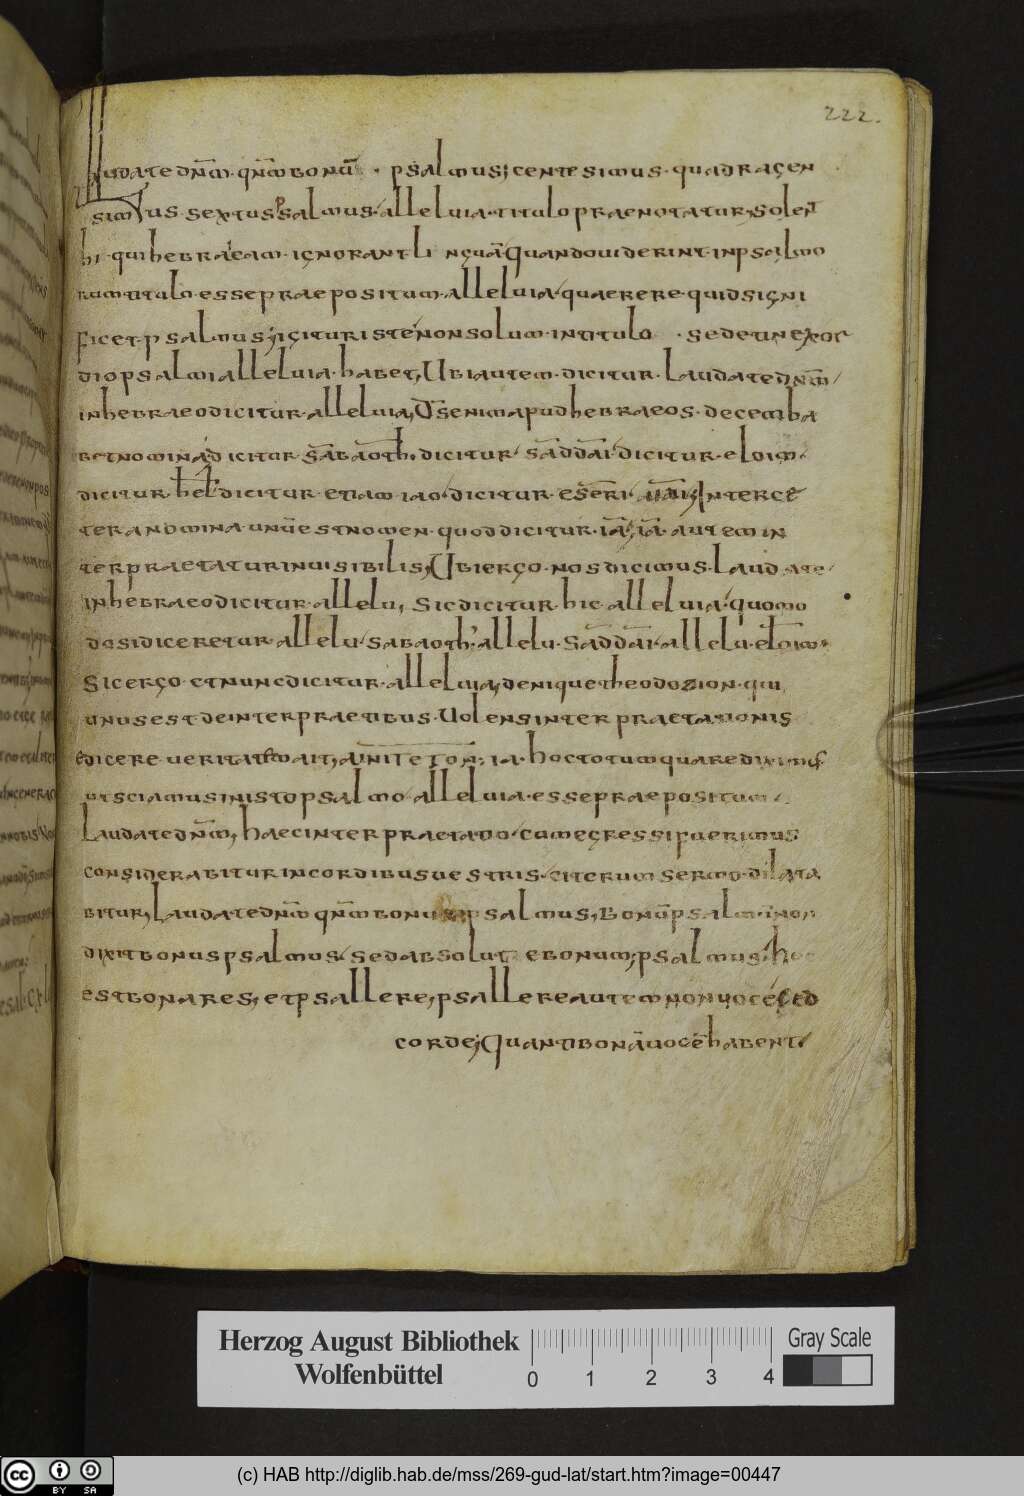 222.
Laudate dn̄m· qn̄m bonū · psalmus; centesimus· quadragen
simus sextus psalmus· alleluia· titulo praenotatur; solent
hi· qui hebraeam· ignorant· linguā· quando uiderint· in psalmo
rum titulo· esse praepositum· alleluia· quaerere· quid signi
ficet· psalmus; igitur iste· non solum· in titulo · sed et in exor
dio psalmi alleluia· habet, Ubi autem· dicitur· Laudate dn̄m/
in hebraeo dicitur· alleluia, Ds̄ enim apud hebraeos· decem ha
bet nomina, dicitur· sābaōth, dicitur· sāddāi· dicitur· eloim·
dicitur· hel· dicitur· etiam· iao· dicitur· esēri· Inter cē
tera nomina· unū est nomen· quod dicitur· iā; iā· autem in
terpraetatur inuisibilis, Ubi ergo· nos dicimus· Laudate·
in hebraeo dicitur· allelu, sic dicitur· hic· alleluia· quomo
do si diceretur· allelu· sabaoth· allelu· sāddāi· allelu· elōim·
Sic ergo· et nunc dicitur· alleluia, denique theodozion· qui
unus est de interpraetibus· Uolens interpraetationis
edicere ueritatem ait, ΑΙΝΙΤΕ ΤΟΝ· ia· hoc totum quare diximus
ut sciamus in isto psalmo· alleluia· esse praepositum·
Laudate dn̄m, haec interpraetatio· cum egressi fuerimus
considerabitur in cordibus uestris· et iterum sermo· dilata
bitur, Laudate dn̄m qn̄m bonus psalmus, Bonū psalm· non
dixit bonus psalmus· sed absolute bonum, psalmus· hoc
est bona res, et psallere, psallere autem non uoce, sed
corde; Quanti bonā uocē habent·
Herzog August Bibliothek
Wolfenbüttel
0 1 2 3 4
Gray Scale
cc BY SA
(c) HAB http://diglib.hab.de/mss/269-gud-lat/start.htm?image=00447